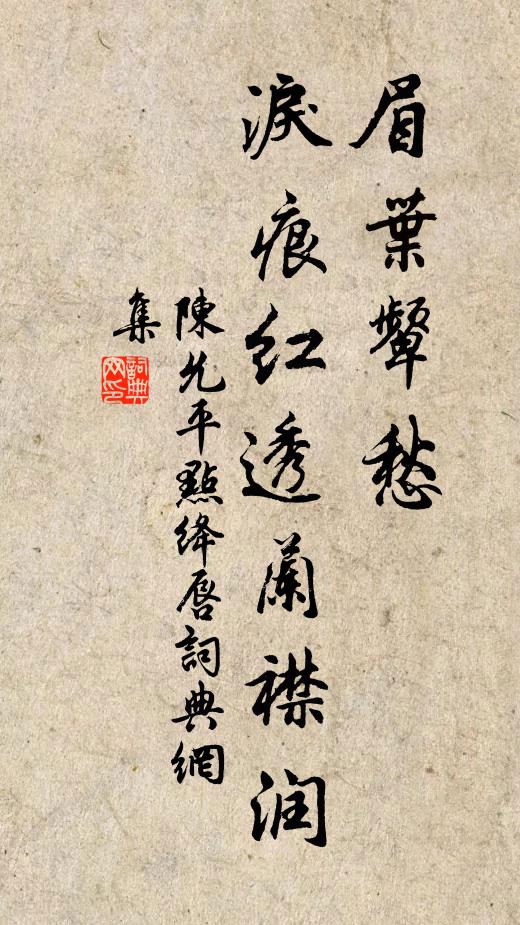 眉葉颦愁
淚痕紅透蘭襟润
陳允平點绛唇詞典網
集
詞典
网印